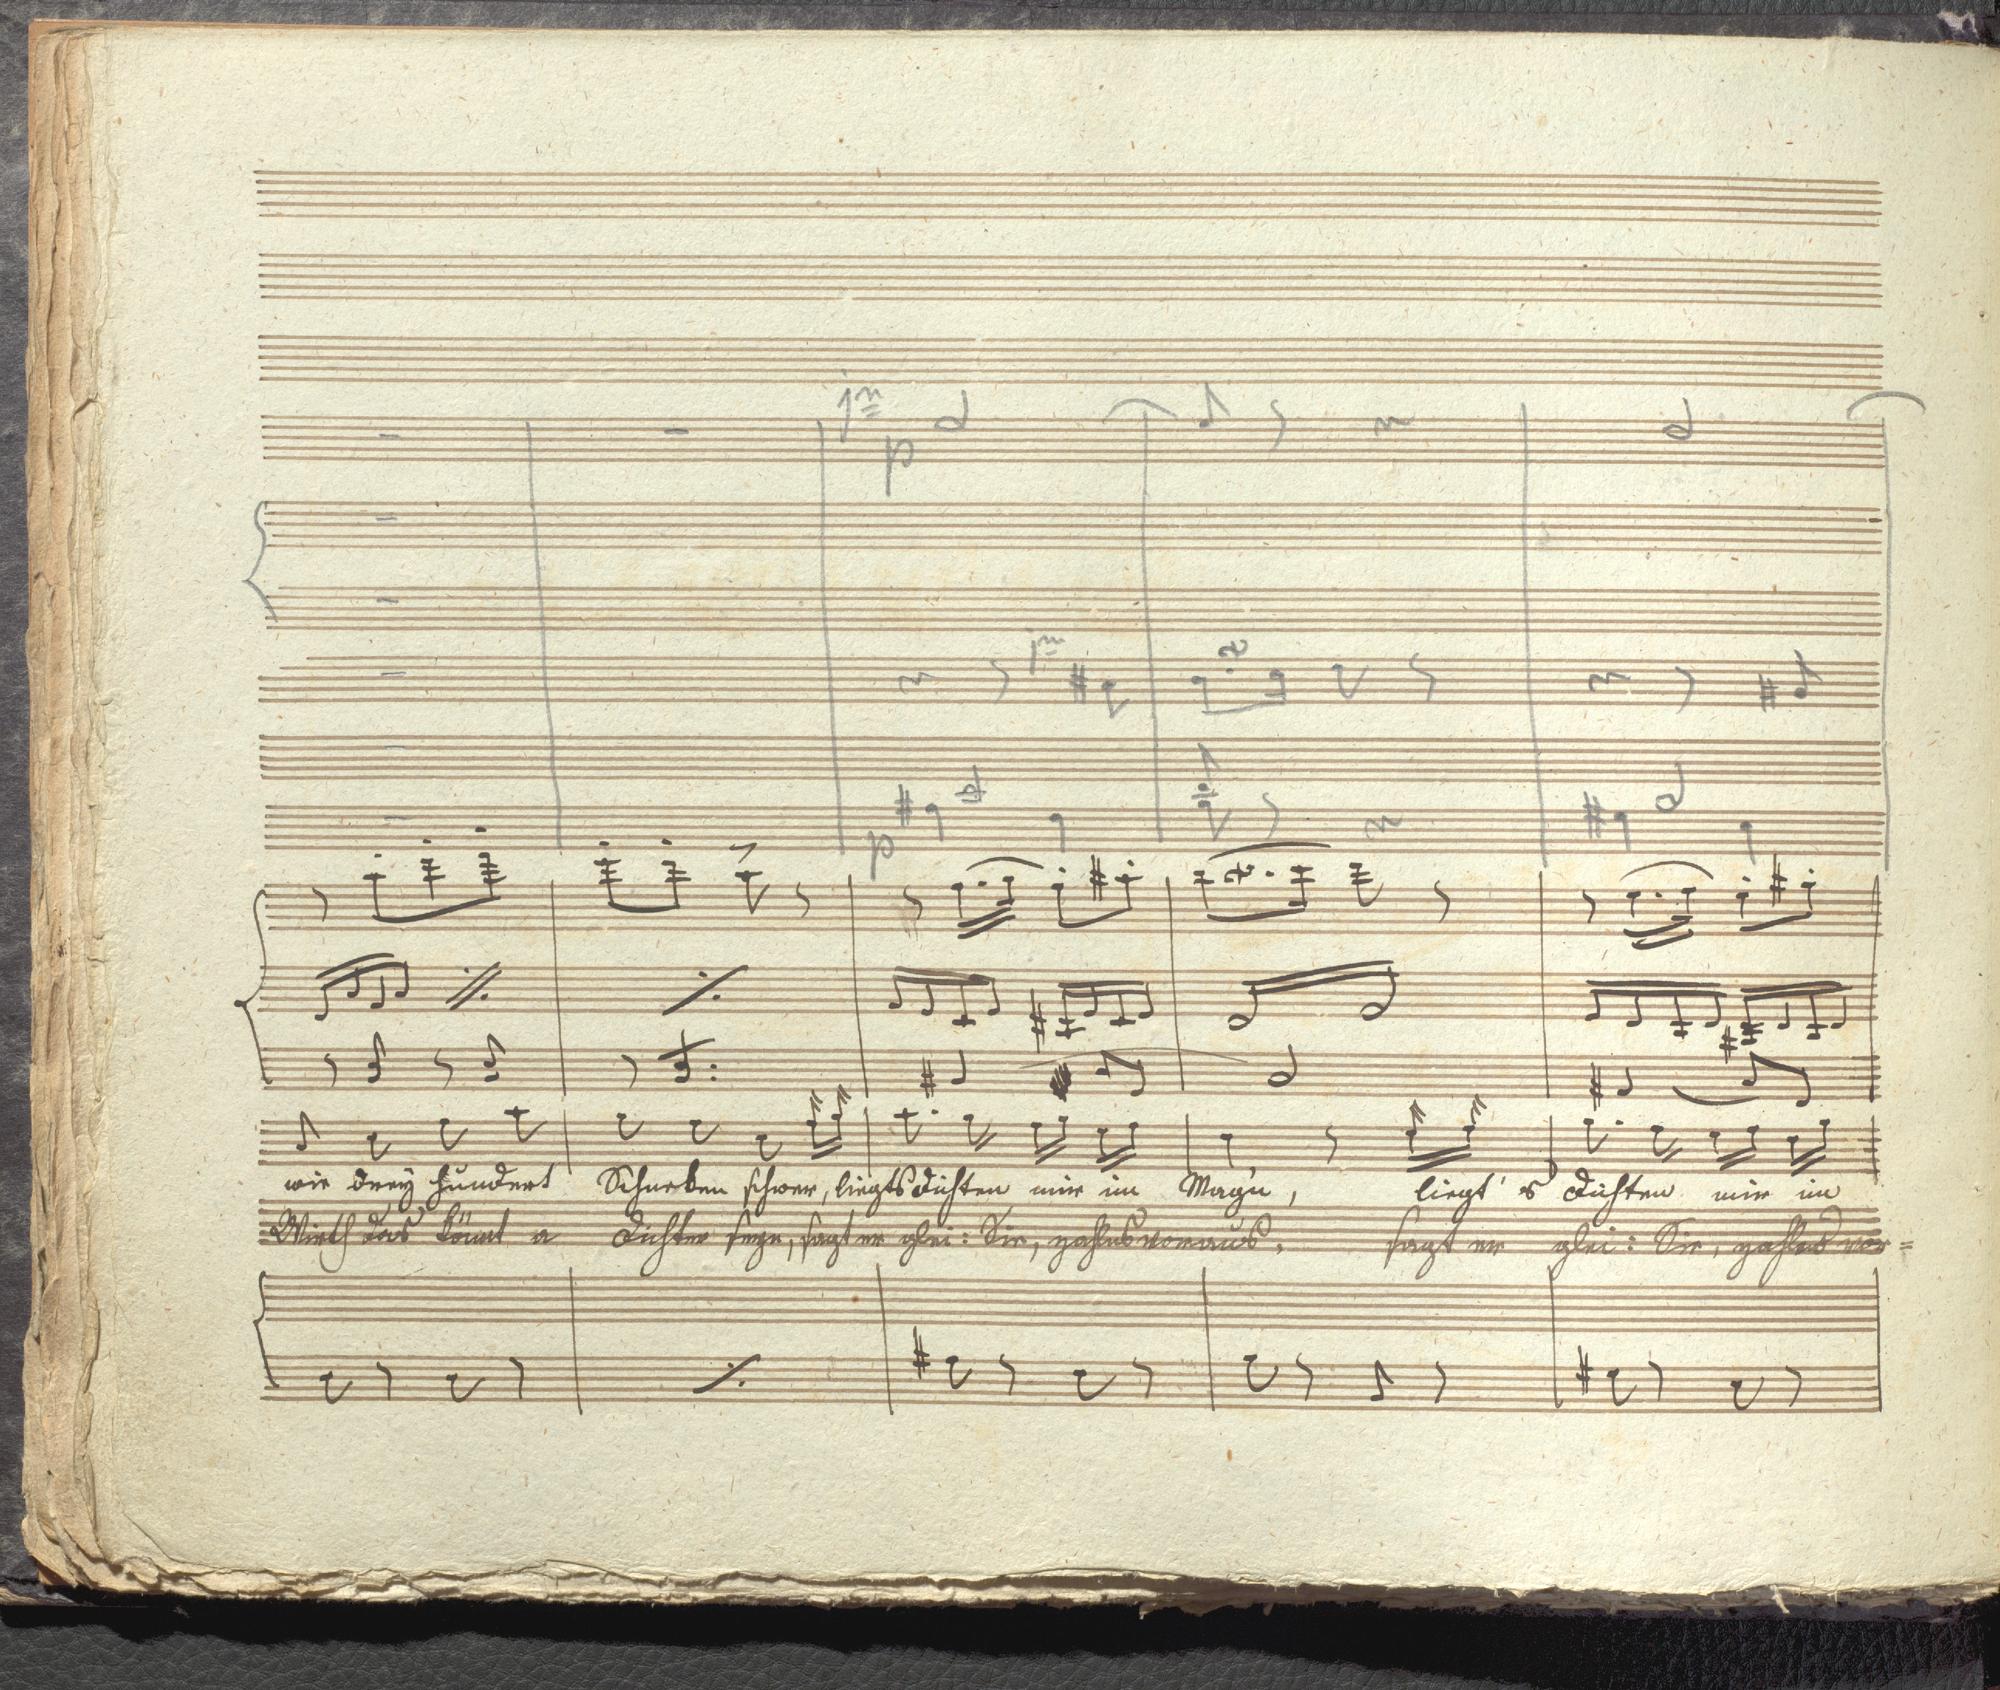 1mo
p
1mo
p
wie drey hundert Schurken schwer, liegts Dichten mir im Mag'n, liegt's Dichten mir im
Wirth das könnt a Dichter seyn, sagt er glei: Sie, zahlns voraus, sagt er glei: Sie, zahlns vor=